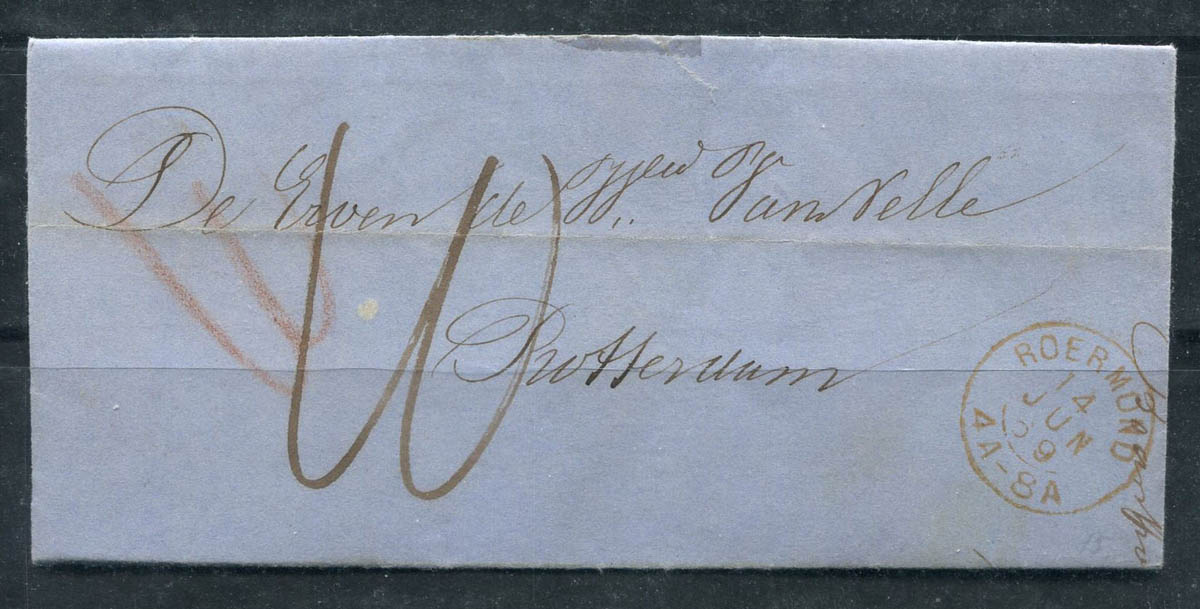 De Erven de Wed J. Van Nelle
Rotterdam
ROERMOND
14
JUN
4A-8A